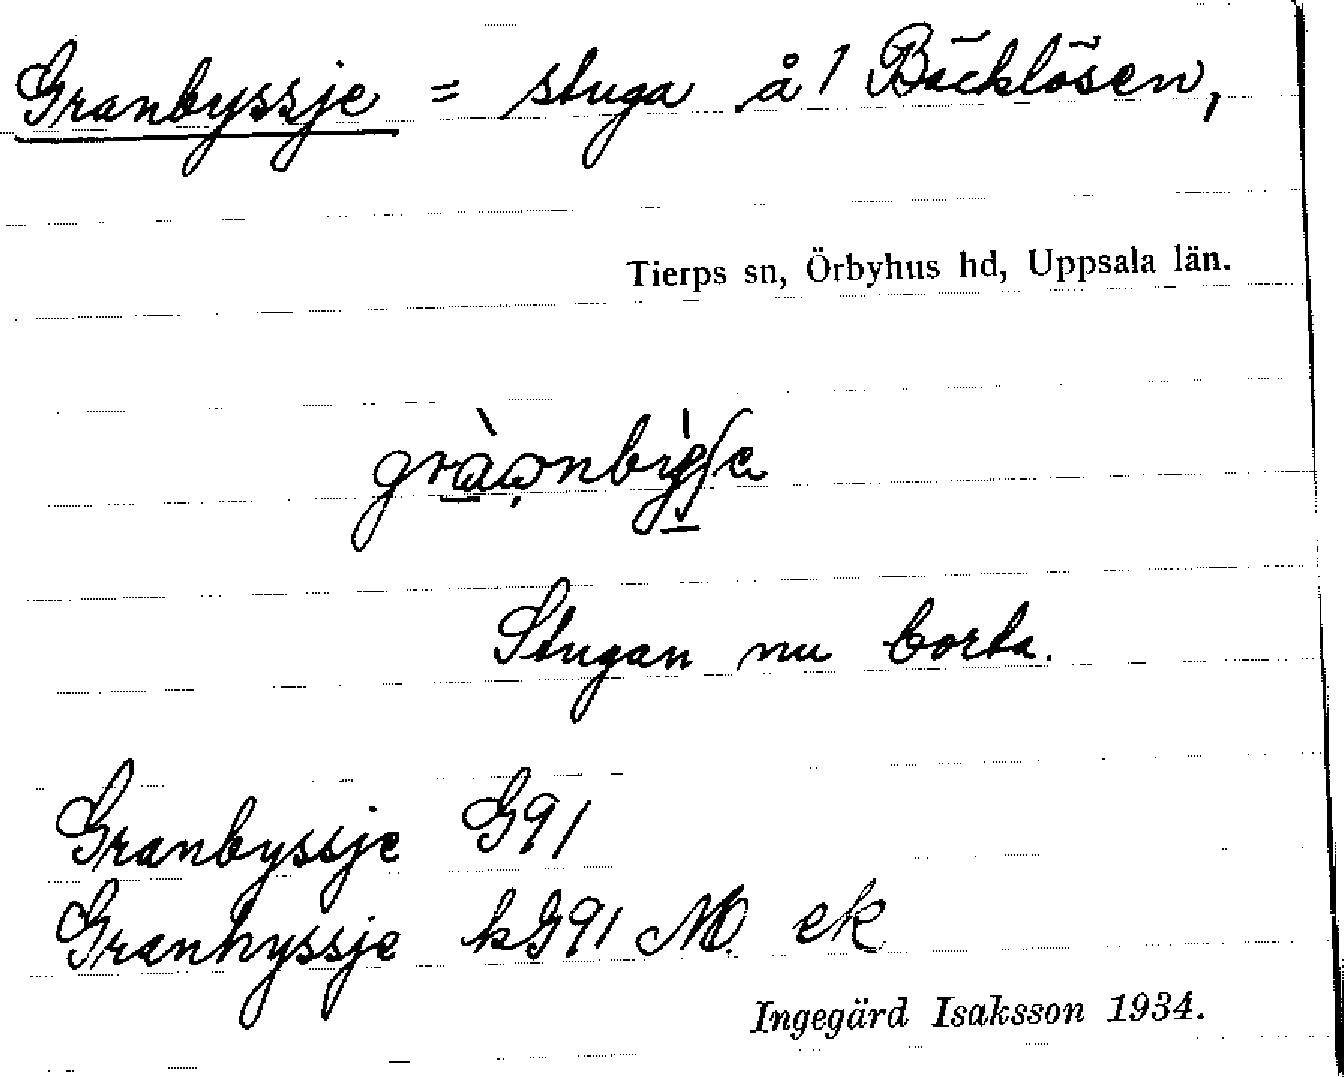 Granbyssje = stuga å 1 Bäcklösen,
Tierps sn, Örbyhus hd, Uppsala län.
Stugan nu borta.
Granbyssje G91
Granhyssje kG91 ek
Ingegärd Isaksson 1934.